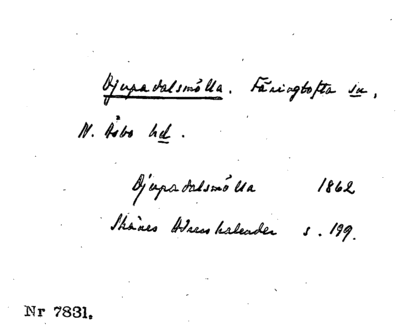 Djupadalsmölla. Färingtofta sn,
N. Åsbo hd.
Djupadalsmölla 1862
Skånes Adresskalender s. 199.
Nr 7831.